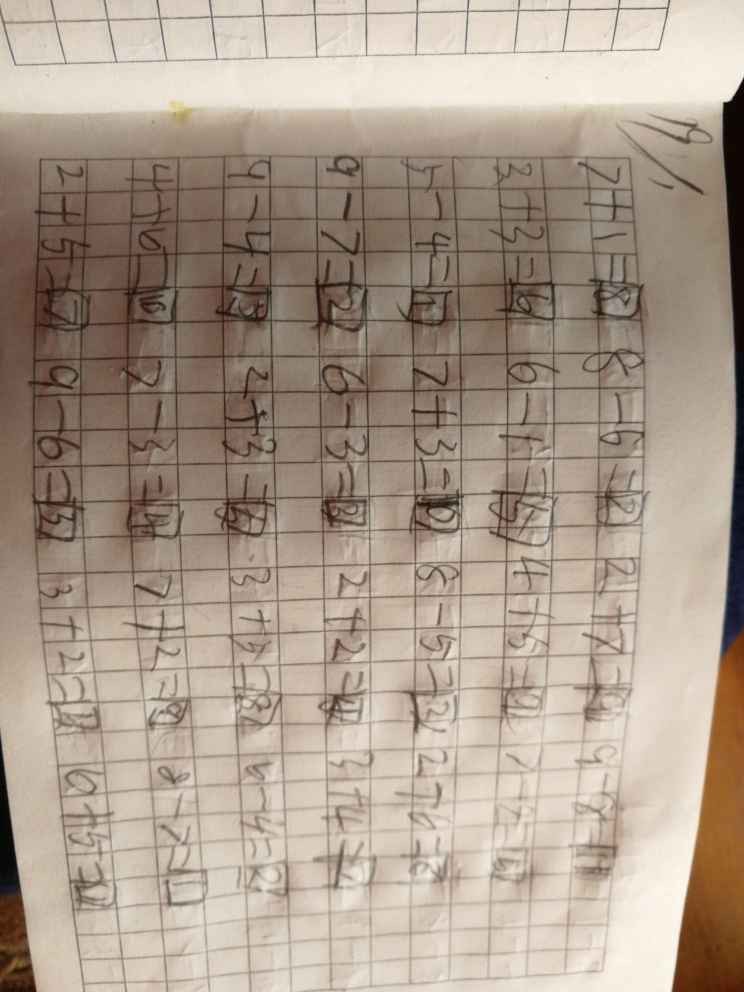 7+1=8 8-6=2 2+7=9 9-8=1
3+3=6 6-1=5 4+5=9
5-4=1 7+3=10 8-5=3 2+6=8
9-7=2 6-3=3 2+2=4 3+4=7
2+3=5 3+5=8 6-4=2
4+6=10 7-3=4 8-7=1
2+5=7 9-6=3 3+2=5